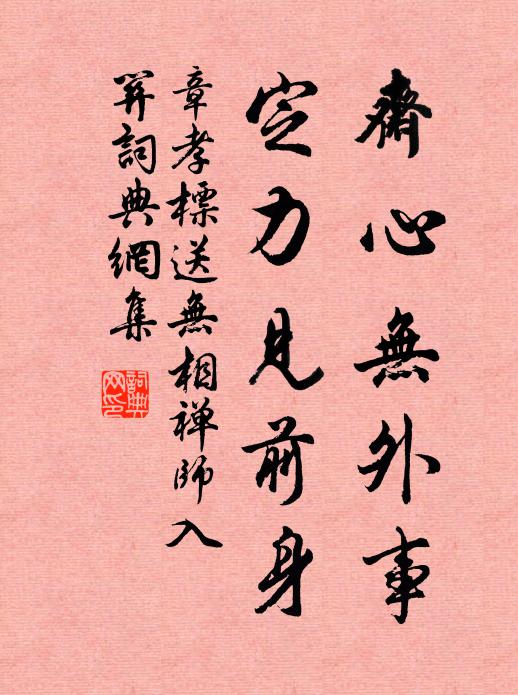 齋心無外事
定力見前身
章孝標送無相禅師入
関詞典網集
詞典
网印